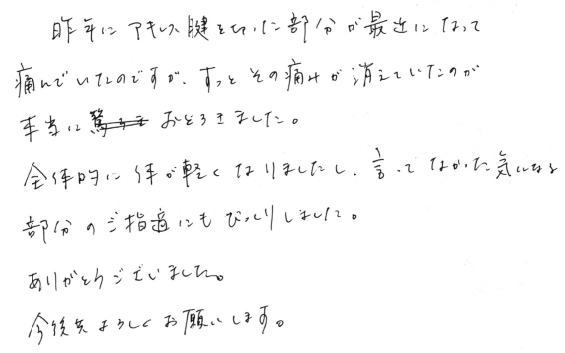 昨年にアキレス腱を切った部分が最近になって
痛んでいたのですが、すっとその痛みが消えていたのが
本当に おどろきました。
全体的に体が軽くなりましたし、言ってなかった気になる
部分のご指摘にもびっくりしました。
ありがとうございました。
今後共よろしくお願いします。